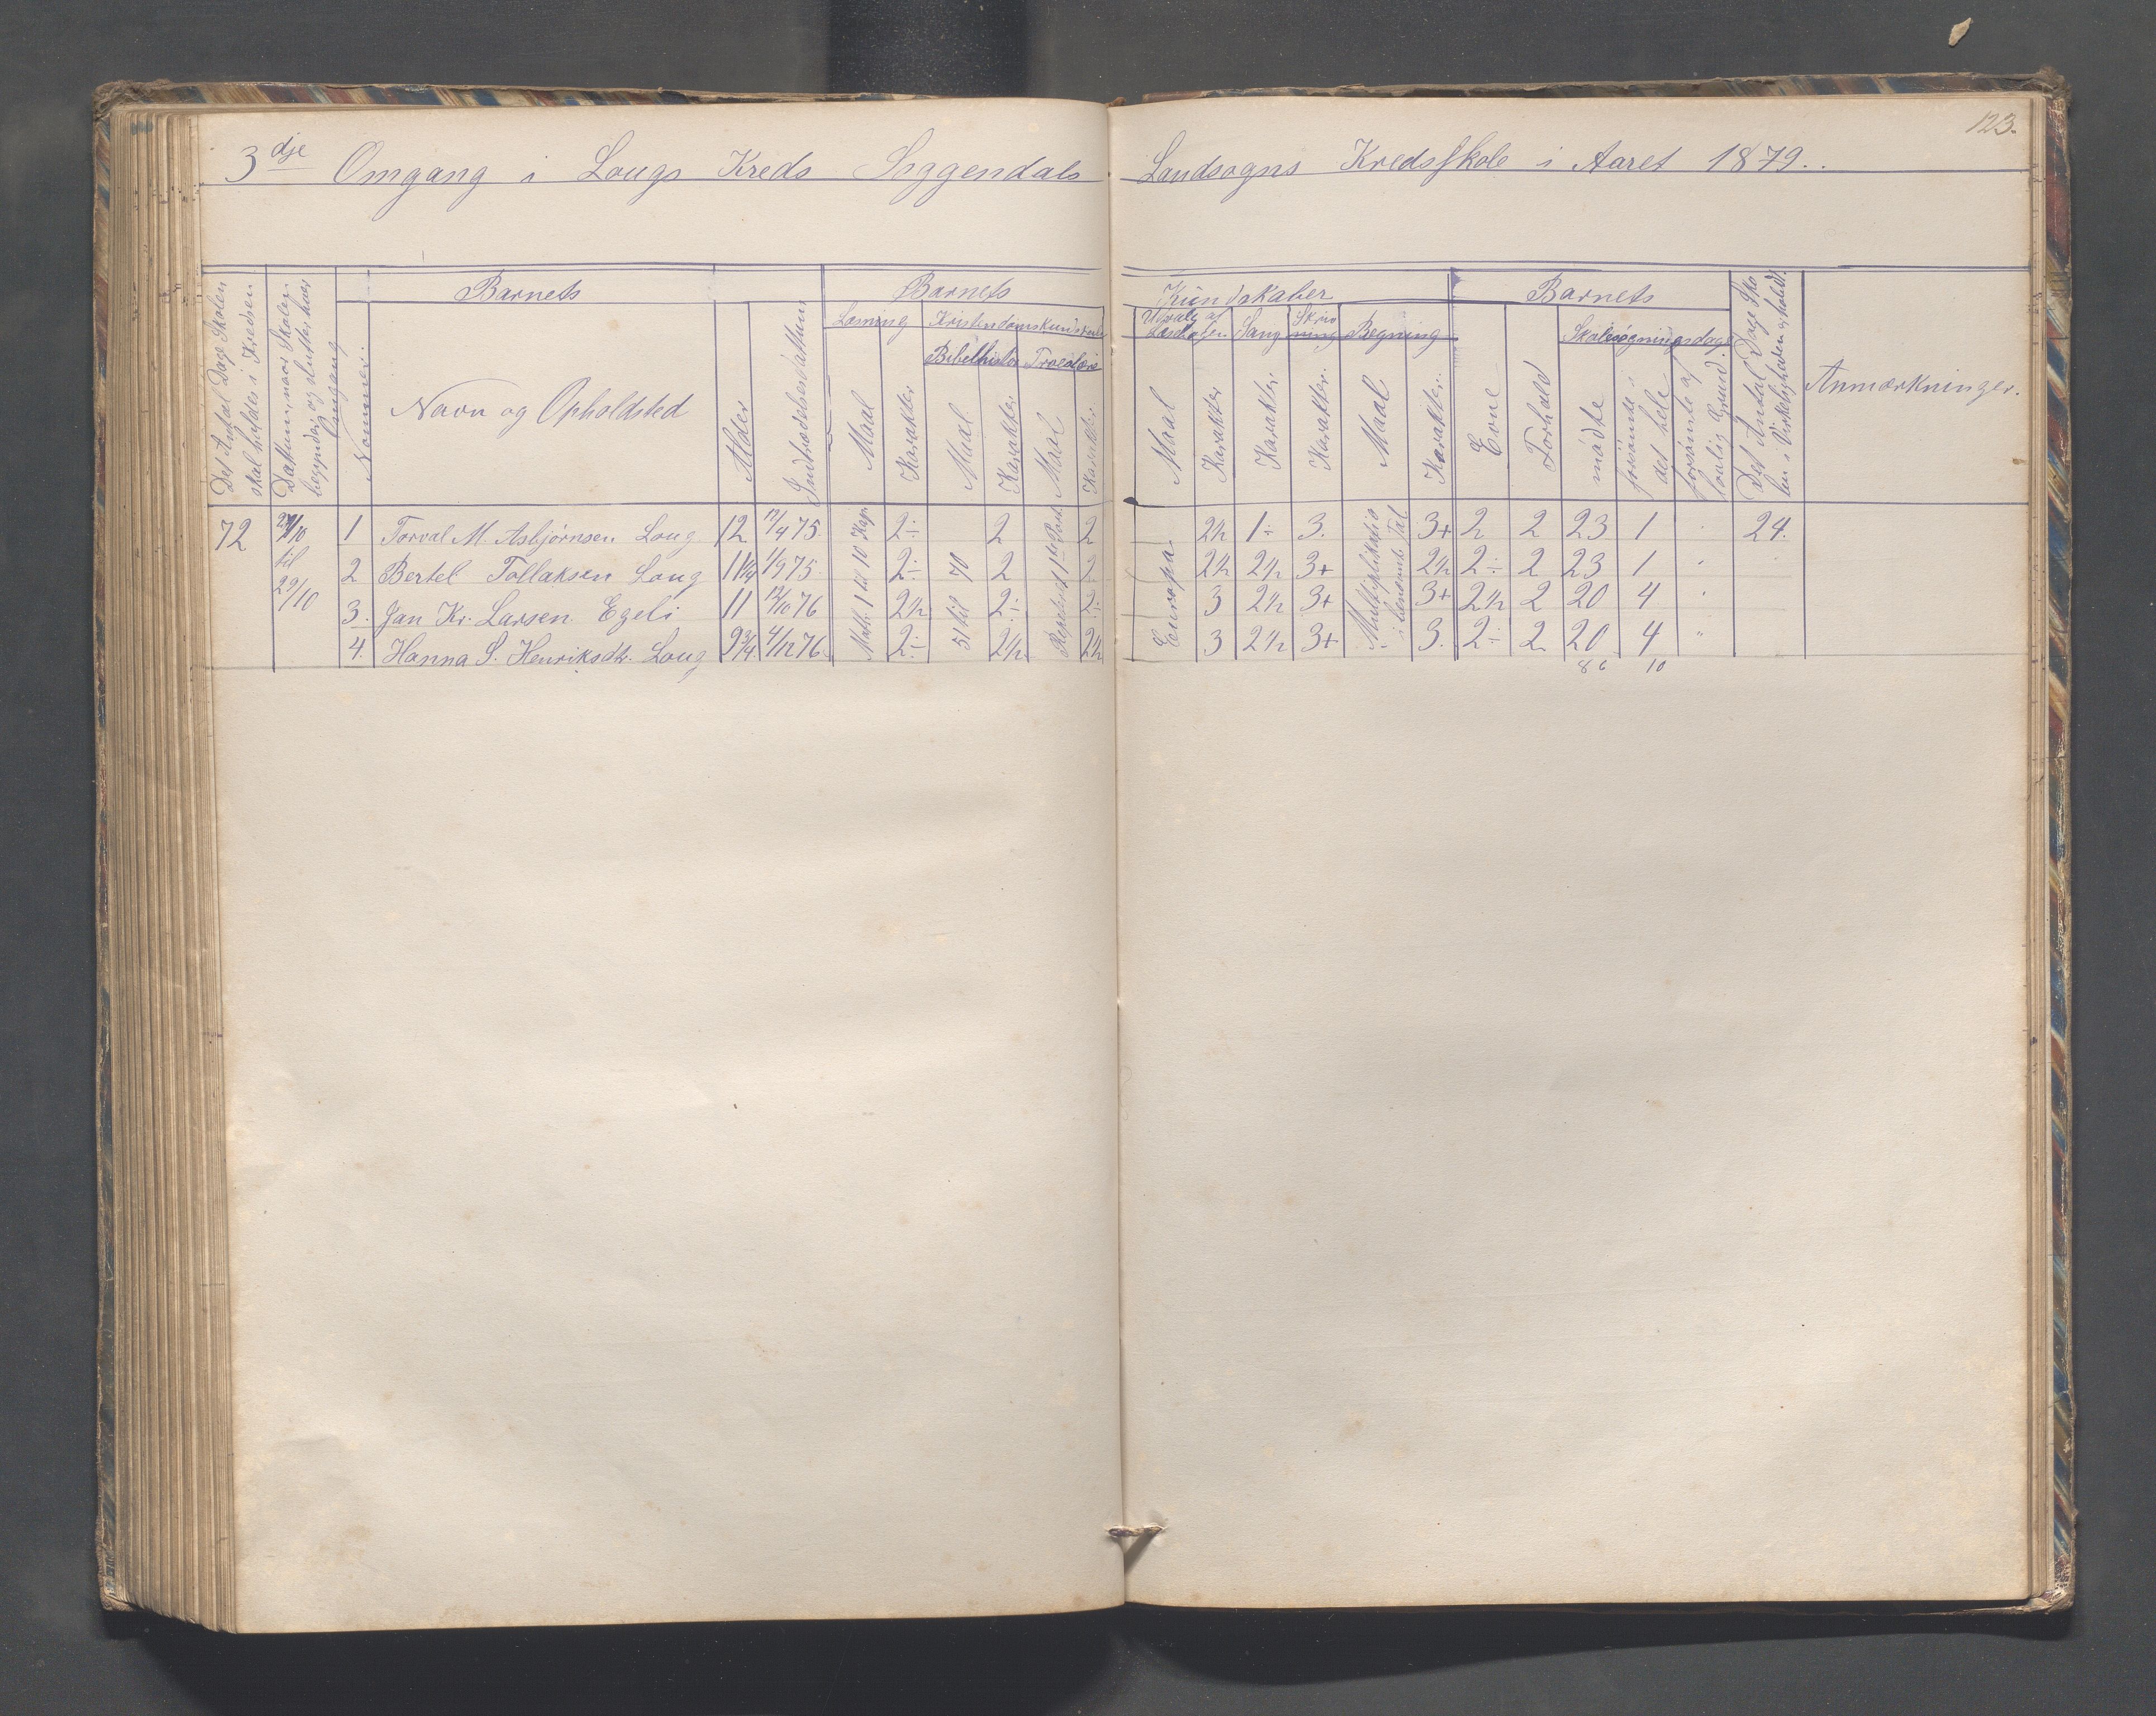 123.
3dje Omgang i Lougs Kreds Soggendals Landsogns Kredsskole i Aaret 1879.
Det Antal Dage Skolen skal holdes i Kredsen
Datum, naar Skolen begynder og slutter hver Omgang
Nommer.
Barnets
Navn og Opholdsted
Alder
Indtrædelsesdatum
Barnets Kundskaber
Læsning
Maal
Karakter
Kristendomskundskab
Bibelhistorie
Maal
Karakter
Troeslære
Maal
Karakter
Udvalg af Læsebogen
Maal
Karakter
Sang
Karakter.
Skrivning
Karakter.
Regning
Maal
Karakter.
Barnets
Evne
Forhold
Skolesøgningsdage
mødte
forsømte i det hele
forsømte af lovlig Grund.
Det Antal Dage Skolen i Virkeligheden er holdt.
Anmærkninger.
72 til 29/10
Math. 1 til 10 Kap.
51 til 70
Europa.
Multiplikation i benævnte Tal
1 Torval M. Asbjørnsen Loug 12 12/4 75. 2÷ 2 2 2½ 1÷ 3. 3+ 2 2 23 1 " 24.
2 Bertel Tollaksen Loug 11¼ 1/9 75 2÷ 2 2 2½ 2½ 3+ 2½ 2÷ 2 23 1 "
3. Jan Kr. Larsen Egeli 11 12/10 76 2½ 2÷ 2÷ 3 2½ 3+ 3+ 2½ 2 20 4 "
4. Hanna S. Henriksdt. Loug 9¾ 4/12 76 2÷ 2½ 2½ 3 2½ 3+ 3. 2÷ 2 20 4 "
86 10